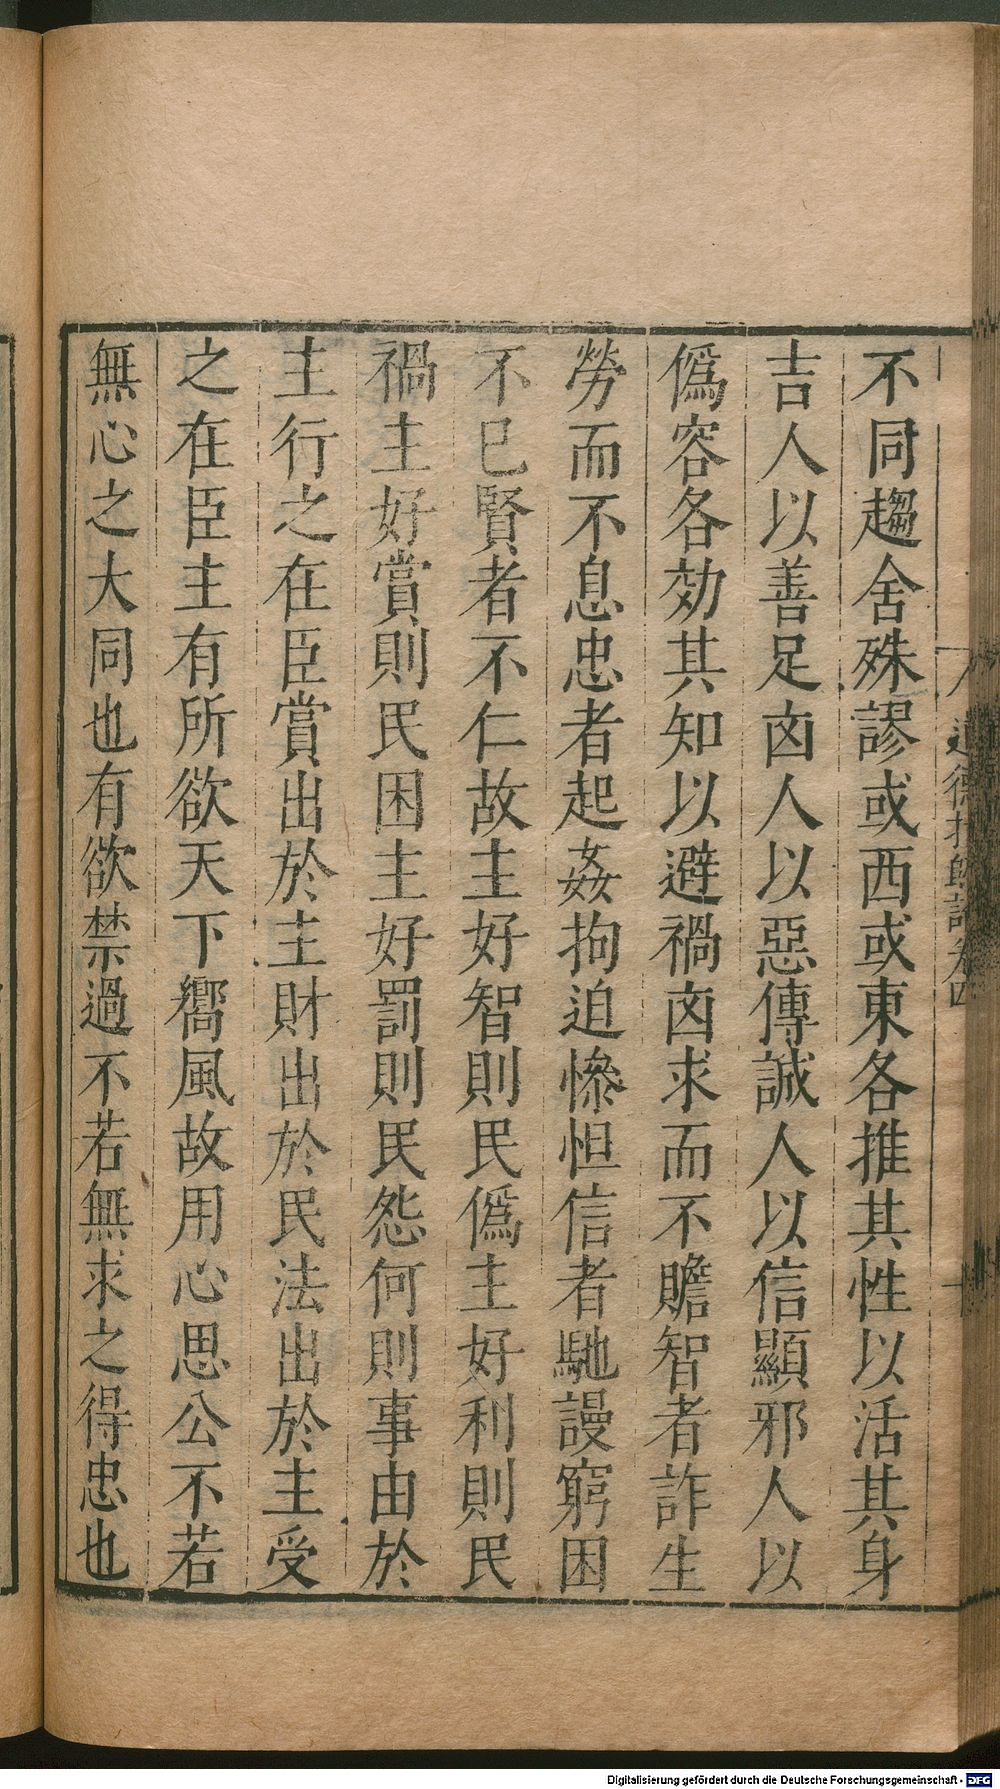 不同趨舍殊謬或西或東各推其性以活其身
吉人以善足凶人以惡傳誠人以信顯邪人以
僞容各効其知以避禍凶求而不贍智者詐生
勞而不息忠者起姦拘迫慘怛信者馳謾窮困
不已賢者不仁故主好智則民僞主好利則民
禍主好賞則民困主好罰則民怨何則事由於
主行之在臣賞出於主財出於民法出於主受
之在臣主有所欲天下嚮風故用心思公不若
無心之大同也有欲禁過不若無求之得忠也
道德指歸論卷四
十
Digitalisierung gefördert durch die Deutsche Forschungsgemeinschaft - DFG